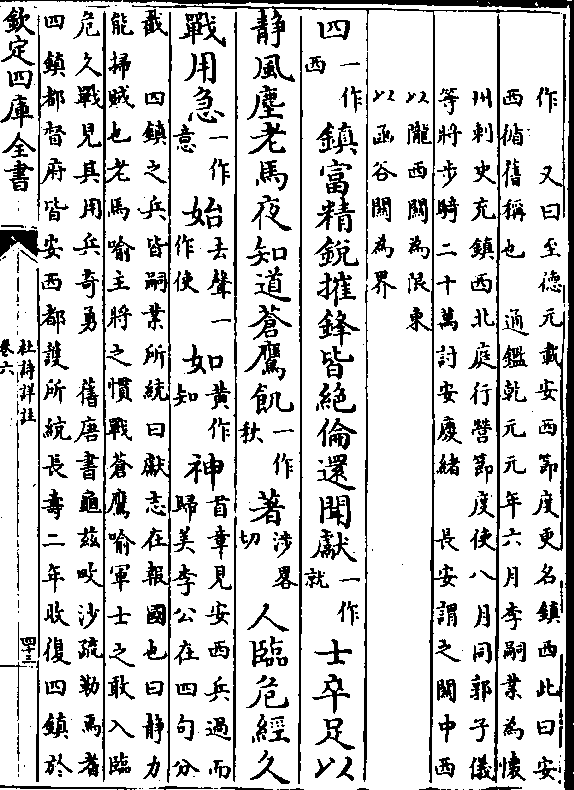 作　又曰至德元載安西節度更名鎮西此曰安
西循舊稱也　通鑑乾元元年六月李嗣業為懷
州刺史充鎮西北庭行營節度使八月同郭子儀
等將步騎二十萬討安慶緒　長安謂之關中西
以隴西關為限東
以函谷關為界
四一作西鎮富精銳摧鋒皆絕倫還聞獻一作就士卒足以
静風塵老馬夜知道蒼鷹飢一作秋著涉畧切人臨危經久
戰用急一作意始去聲一作使如黃作知神首章見安西兵過而歸美李公在四句分
截　四鎮之兵皆嗣業所統曰獻志在報國也曰静力
能掃賊也老馬喻主將之慣戰蒼鷹喻軍士之敢入臨
危久戰見其用兵奇勇　舊唐書龜兹㕵沙疏勒焉耆
四鎮都督府皆安西都護所統長壽二年收復四鎮於
欽定四庫全書
杜詩詳註
卷六
四十三